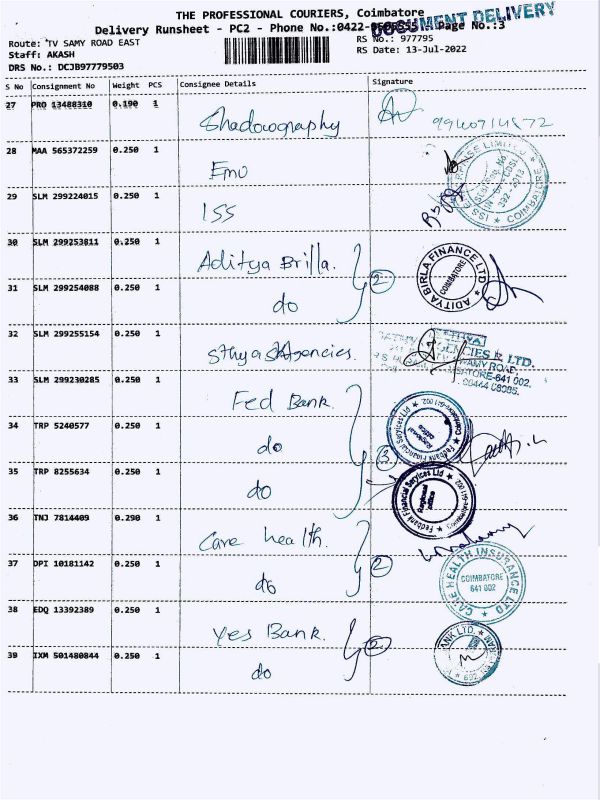 THE PROFESSIONAL COURIERS, Coimbatore
DOCUMENT DELIVERY
Delivery Runsheet - PC2 - Phone No.:0422- Page No.:3
Route: TV SAMY ROAD EAST
RS No.: 977795
Staff: AKASH
RS Date: 13-Jul-2022
DRS No.: DCJB97779503
S No Consignment No Weight PCS Consignee Details Signature
27 PRO 13488310 0.190 1 Shadowography
28 MAA 565372259 0.250 1 Emu
29 SLM 299224015 0.250 1 ISS
COIMBATORE
30 SLM 299253811 0.250 1 Aditya Brilla. 2
ADITYA BIRLA FINANCE LTD
COIMBATORE
31 SLM 299254088 0.250 1 do
32 SLM 299255154 0.250 1
33 SLM 299230285 0.250 1 Fed Bank.
Fedbank Financial Services Ltd
Regional office
Coimbatore-641 002
34 TRP 5240577 0.250 1 do 3
35 TRP 8255634 0.250 1 do
Fedbank Financial Services Ltd
Regional office
Coimbatore-641 002
36 TNJ 7814409 0.290 1 Care health.
37 DPI 10181142 0.250 1 do 2
CARE HEALTH INSURANCE LTD
COIMBATORE
641 002
38 EDQ 13392389 0.250 1 Yes Bank. 2
BANK LTD.
39 IXM 501480844 0.250 1 do